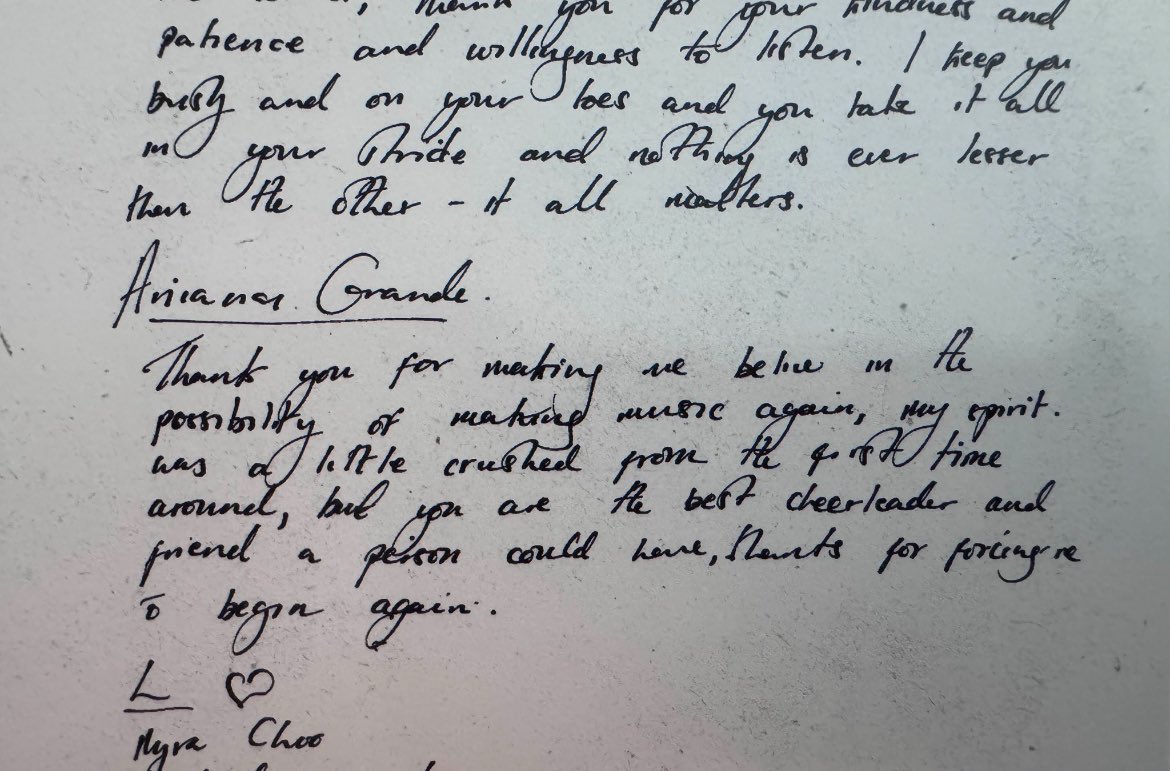 thank you for your kindness and
patience and willingness to listen. I keep you
busy and on your toes and you take it all
in your stride and nothing is ever lesser
than the other - it all matters.
Ariana Grande.
Thank you for making me belive in the
possibility of making music again, my spirit.
was a little crushed from the first time
around, but you are the best cheerleader and
friend a person could have, thanks for forcing me
to begin again.
L ♡
Myra Choo